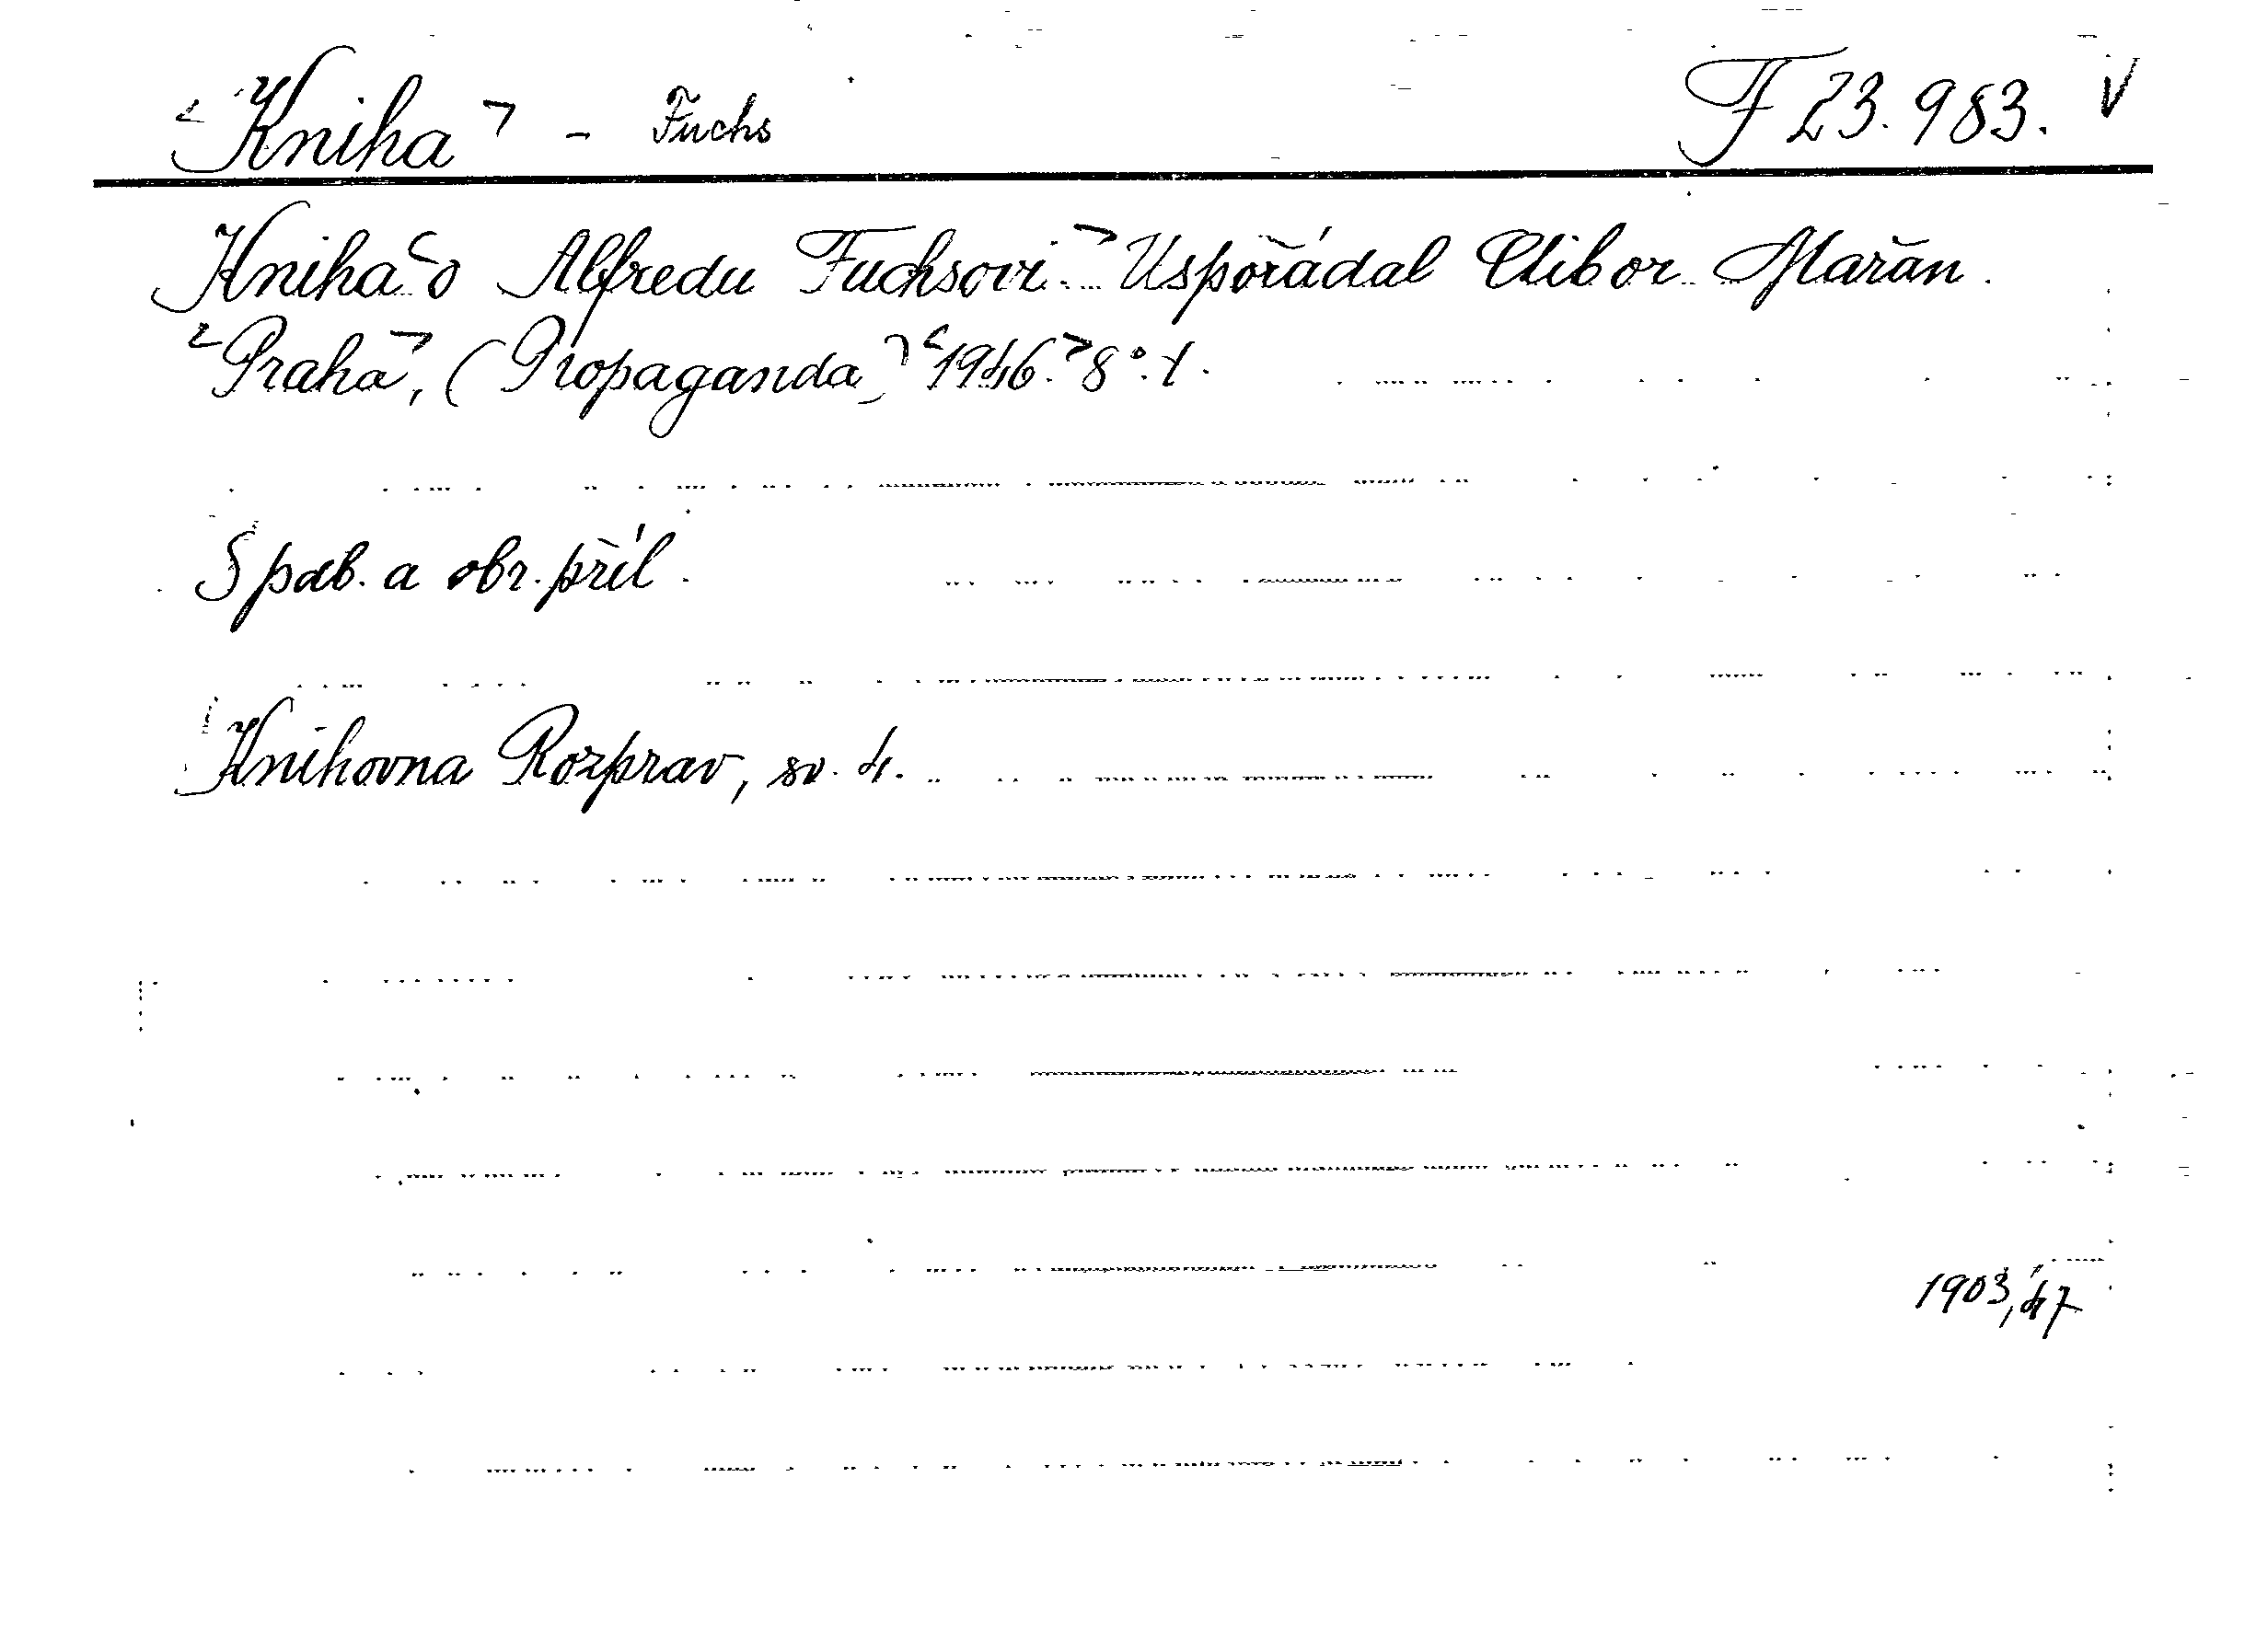 <Kniha> - Fuchs F 23.983. V
Kniha <o Alfredu Fuchsovi.> Uspořádal Ctibor Mařan.
<Praha>, (Propaganda,) <1946.> 8°.
S pod. a obr. příl.
Knihovna Rozprav, sv. 4.
1903,47